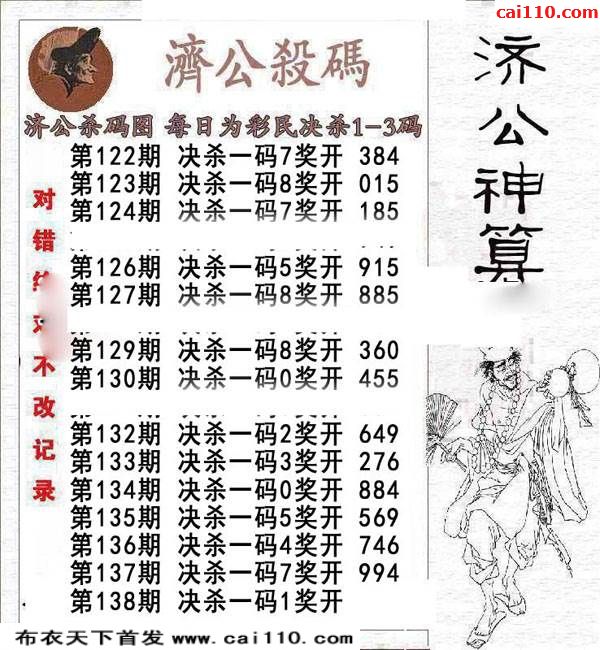 cai110.com
濟公殺碼
济公杀码图 每日为彩民决杀1-3码
第122期 决杀一码7奖开 384
第123期 决杀一码8奖开 015
第124期 决杀一码7奖开 185
第126期 决杀一码5奖开 915
第127期 决杀一码8奖开 885
第129期 决杀一码8奖开 360
第130期 决杀一码0奖开 455
第132期 决杀一码2奖开 649
第133期 决杀一码3奖开 276
第134期 决杀一码0奖开 884
第135期 决杀一码5奖开 569
第136期 决杀一码4奖开 746
第137期 决杀一码7奖开 994
第138期 决杀一码1奖开
对错
不改记录
济公神算
布衣天下首发 www.cai110.com